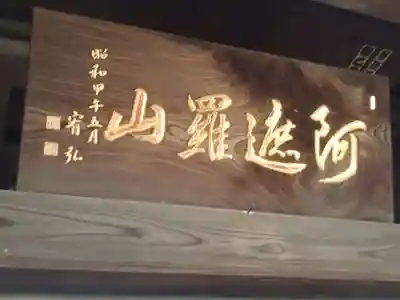 阿遮羅山
昭和甲午五月
宥弘